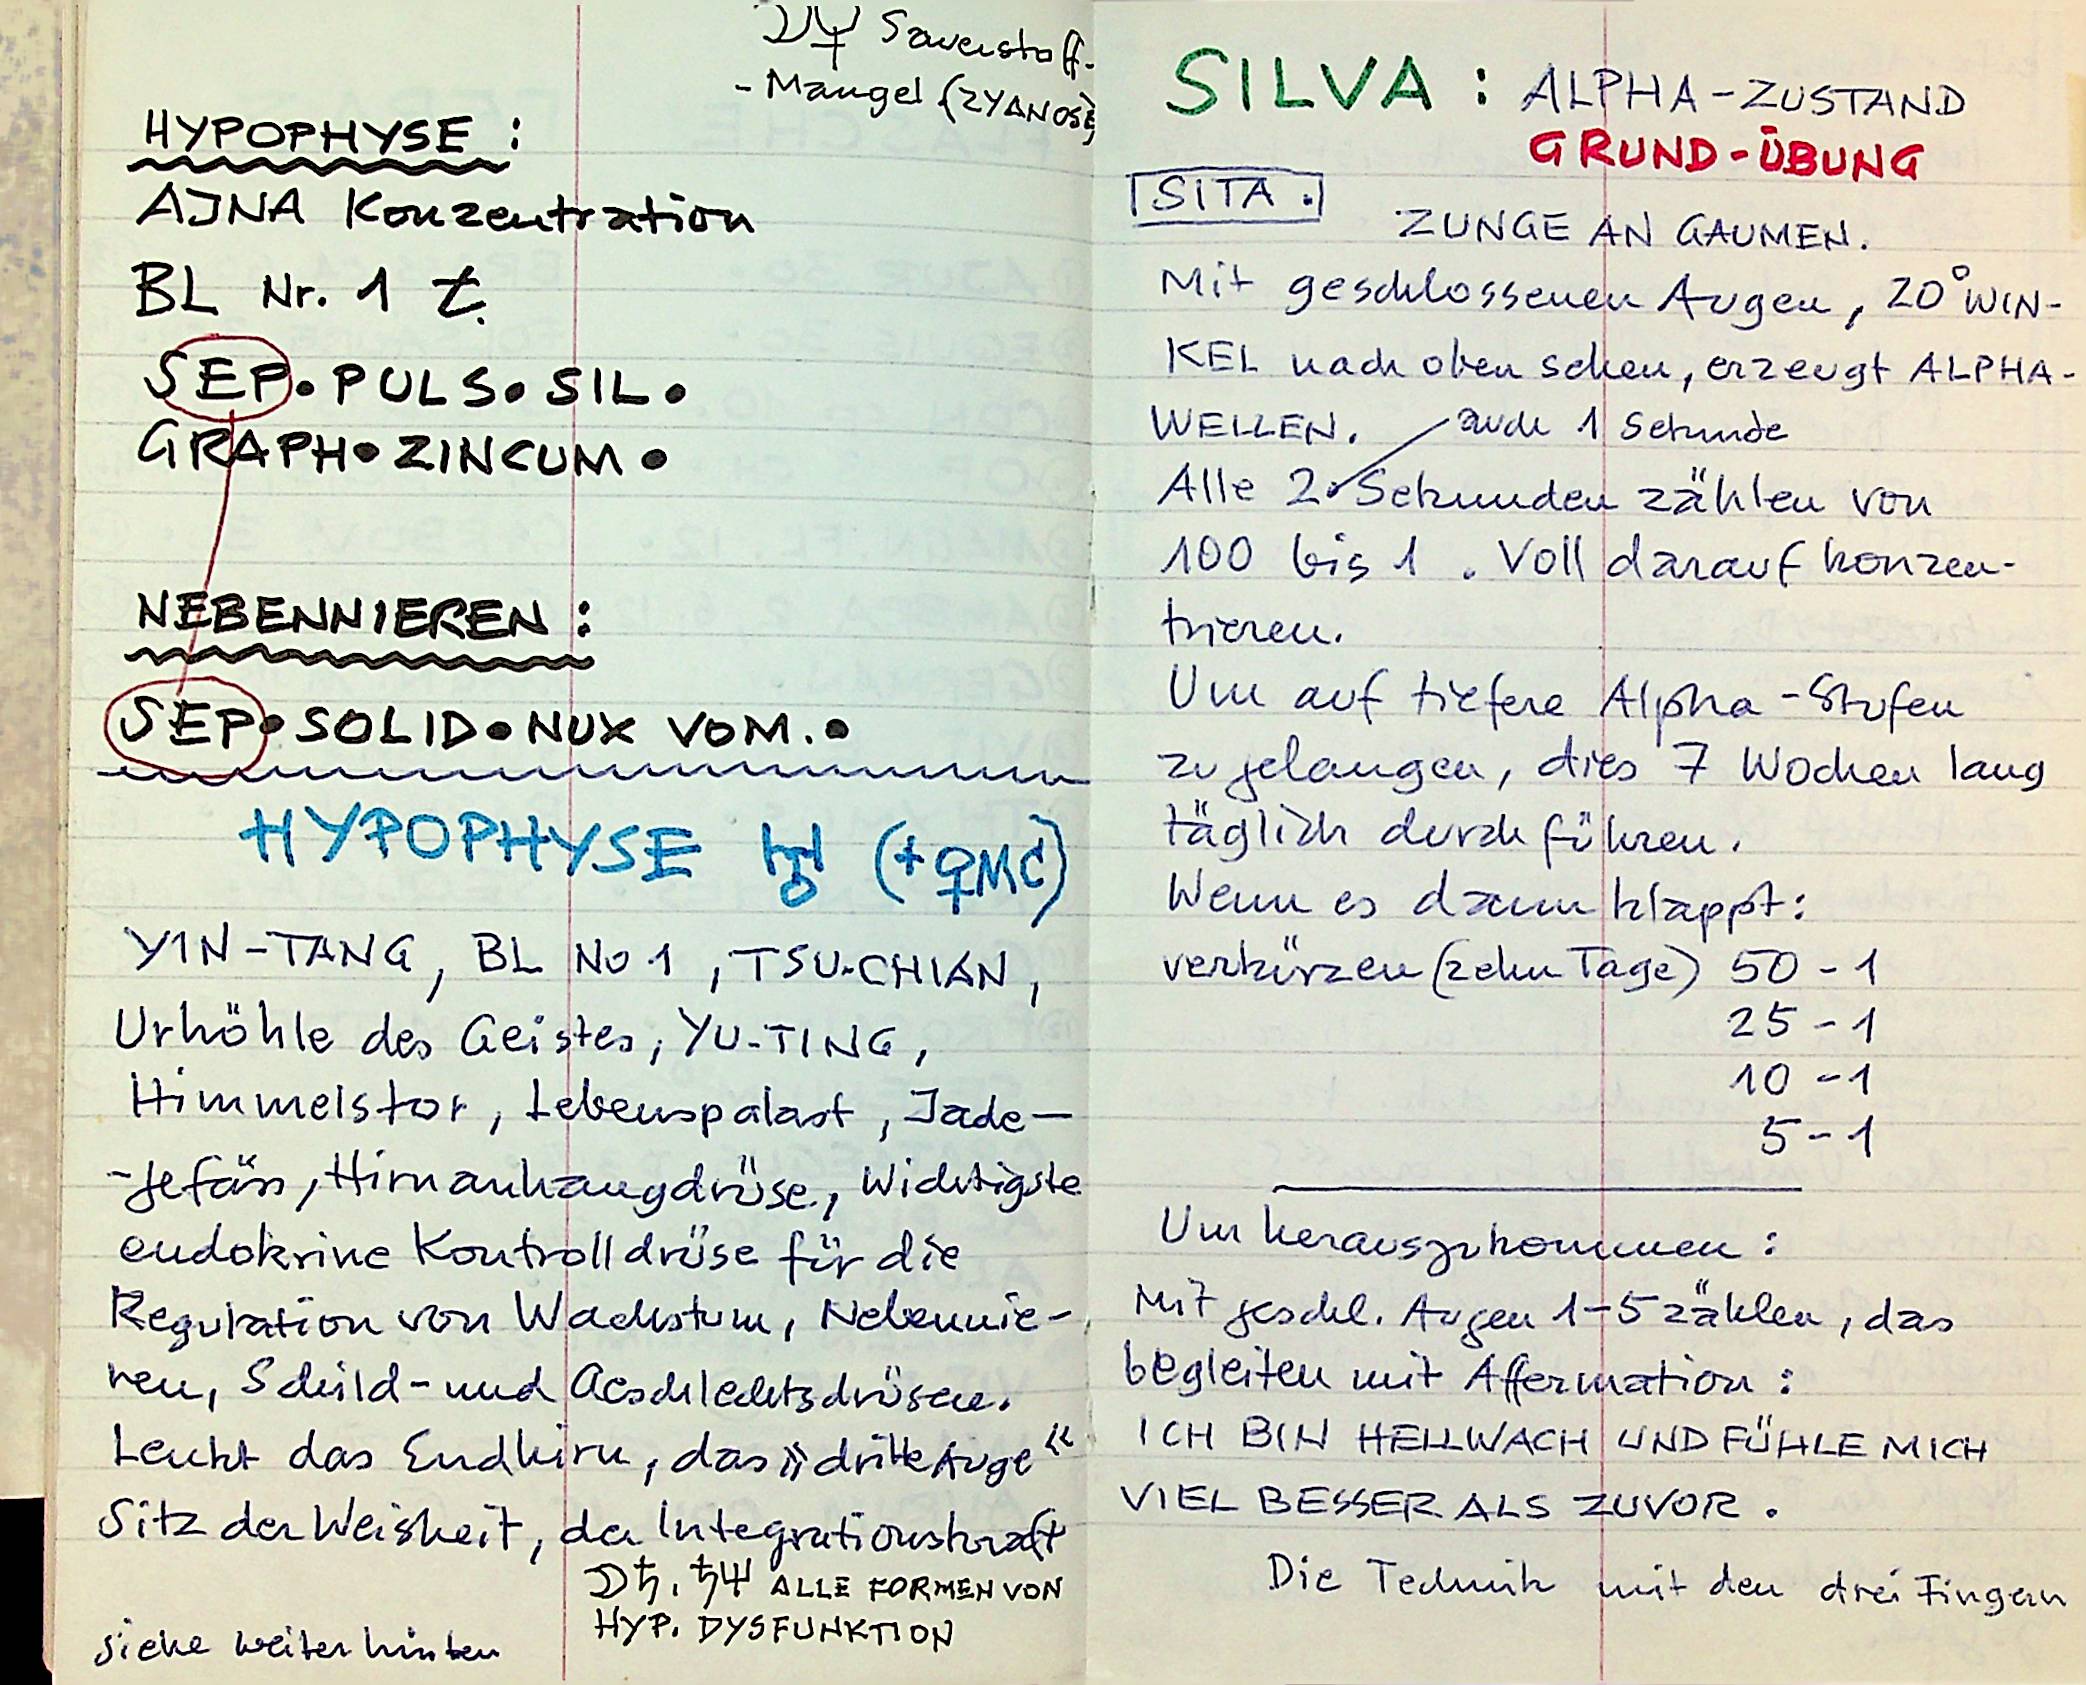 ☽♆ Sauerstoff-
-Mangel (ZYANOSE)
HYPOPHYSE :
AJNA Konzentration
BL Nr. 1 t.
SEP • PULS • SIL •
GRAPH • ZINCUM •
NEBENNIEREN :
SEP • SOLID • NUX VOM. •
HYPOPHYSE (+♀MC)
YIN-TANG, BL No 1, TSU-CHIAN,
Urhöhle des Geistes, YU-TING,
Himmelstor, Lebenspalast, Jade-
-gefäss, Hirnanhangdrüse, Wichtigste
endokrine Kontrolldrüse für die
Regulation von Wachstum, Nebennie-
ren, Schild- und Geschlechtsdrüsen.
Lenkt das Endhirn, das »dritte Auge«
Sitz der Weisheit, der Integrationskraft
☽♄, ♄♆ ALLE FORMEN VON
HYP. DYSFUNKTION
siehe weiter hinten
SILVA : ALPHA-ZUSTAND
GRUND-ÜBUNG
SITA.
ZUNGE AN GAUMEN.
Mit geschlossenen Augen, 20° WIN-
KEL nach oben sehen, erzeugt ALPHA-
WELLEN. auch 1 Sekunde
Alle 2 Sekunden zählen von
100 bis 1. Voll darauf konzen-
trieren.
Um auf tiefere Alpha-Stufen
zu gelangen, dies 7 Wochen lang
täglich durchführen.
Wenn es dann klappt:
verkürzen (zehn Tage) 50 - 1
25 - 1
10 - 1
5 - 1
Um herauszukommen :
Mit geschl. Augen 1-5 zählen, das
begleiten mit Affermation :
ICH BIN HELLWACH UND FÜHLE MICH
VIEL BESSER ALS ZUVOR.
Die Technik mit den drei Fingern